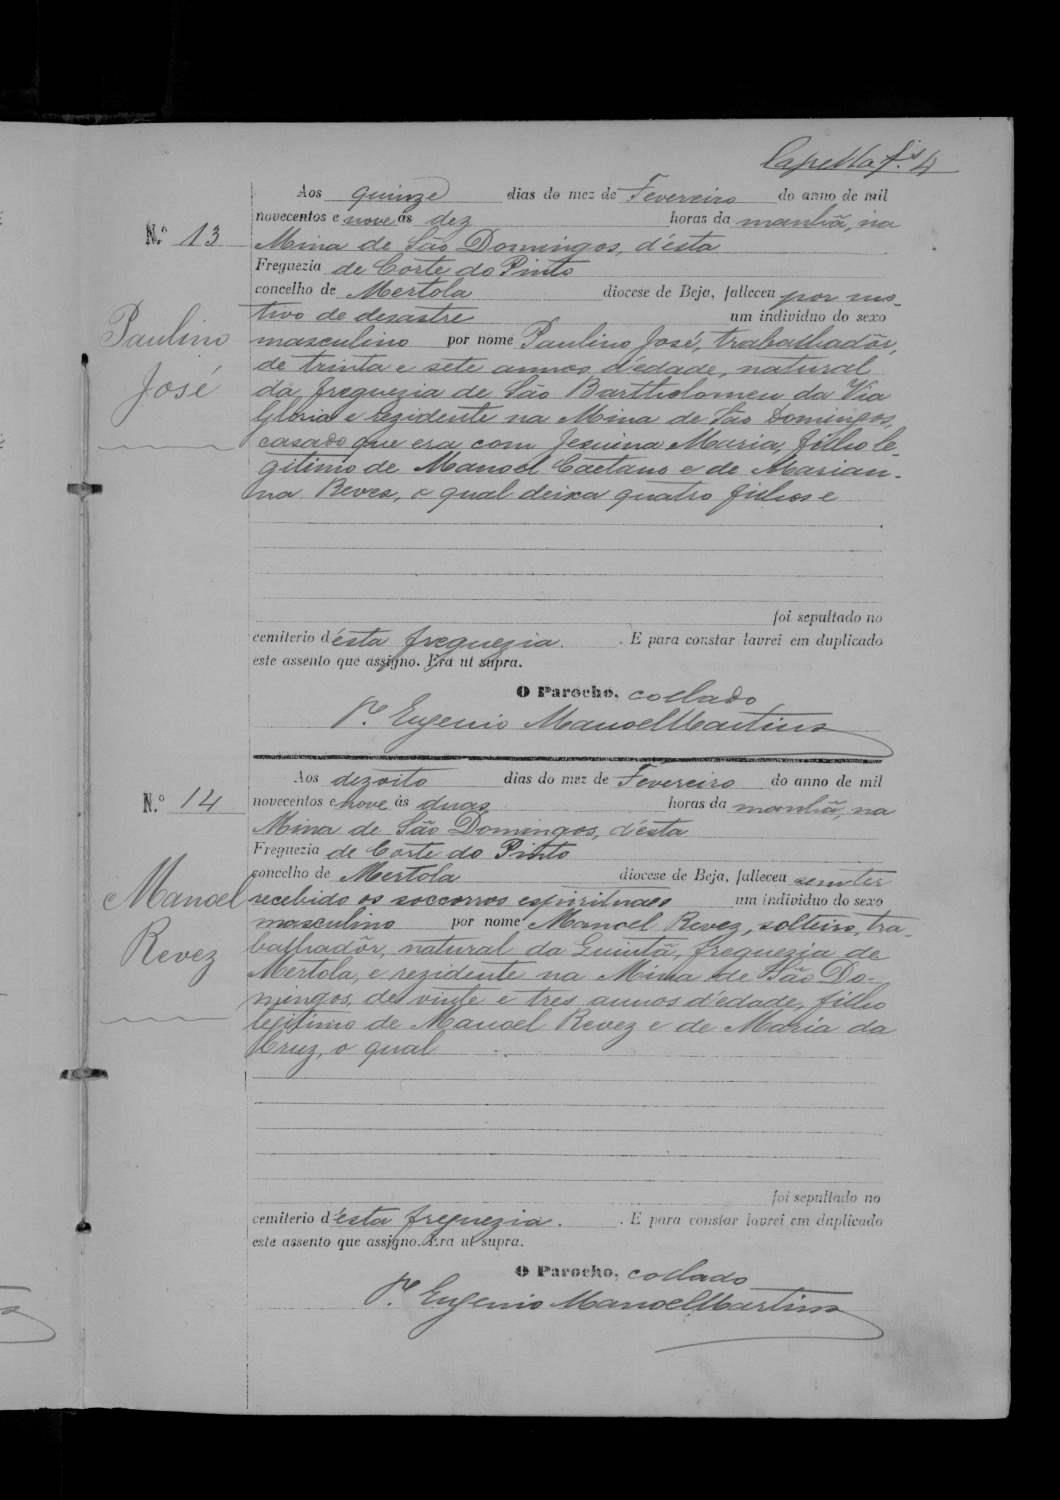 Capella fs. 4
Aos quinze dias do mez de Fevereiro do anno de mil
novecentos e nove ás dez horas da manhã, na
N.º 13
Mina de São Domingos, d'ésta
Freguezia de Corte do Pinto
concelho de Mertola diocese de Beja, falleceu por mo-
tivo de desastre um individuo do sexo
Paulino
José
masculino por nome Paulino José, trabalhadôr,
de trinta e sete annos d'édade, natural
da freguezia de São Bartholomeu da Via
Gloria e rezidente na Mina de São Domingos,
casado que era com Jesuina Maria, filho le-
gitimo de Manoel Caetano e de Marian-
na Reves, o qual deixa quatro filhos e
foi sepultado no
cemiterio d'ésta freguezia. . E para constar lavrei em duplicado
este assento que assigno. Era ut supra.
O Parocho, collado
P.e Eugenio Manoel Martins
Aos dezoito dias do mez de Fevereiro do anno de mil
N.º 14
novecentos e nove ás duas horas da manhã, na
Mina de São Domingos, d'ésta
Freguezia de Corte do Pinto
concelho de Mertola diocese de Beja, falleceu sem ter
Manoel
Revez
recebido os soccorros espirituaes um individuo do sexo
masculino por nome Manoel Revez, solteiro, tra-
balhadôr, natural da Guintã, freguezia de
Mertola, e rezidente na Mina de São Do-
mingos, de vinte e tres annos d'édade, filho
legitimo de Manoel Revez e de Maria da
Cruz, o qual
foi sepultado no
cemiterio d'ésta freguezia. . E para constar lavrei em duplicado
este assento que assigno. Era ut supra.
O Parocho, collado
P.e Eugenio Manoel Martins